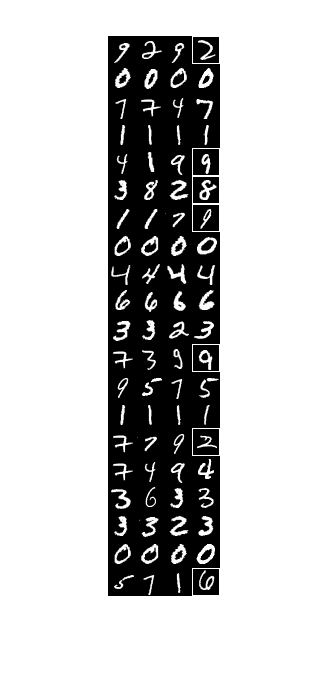 9 2 9 2
0 0 0 0
7 7 4 7
1 1 1 1
4 1 9 9
3 8 2 8
1 1 7 9
0 0 0 0
4 4 4 4
6 6 6 6
3 3 2 3
7 3 9 9
9 5 7 5
1 1 1 1
7 7 9 2
7 4 9 4
3 6 3 3
3 3 2 3
0 0 0 0
5 7 1 6